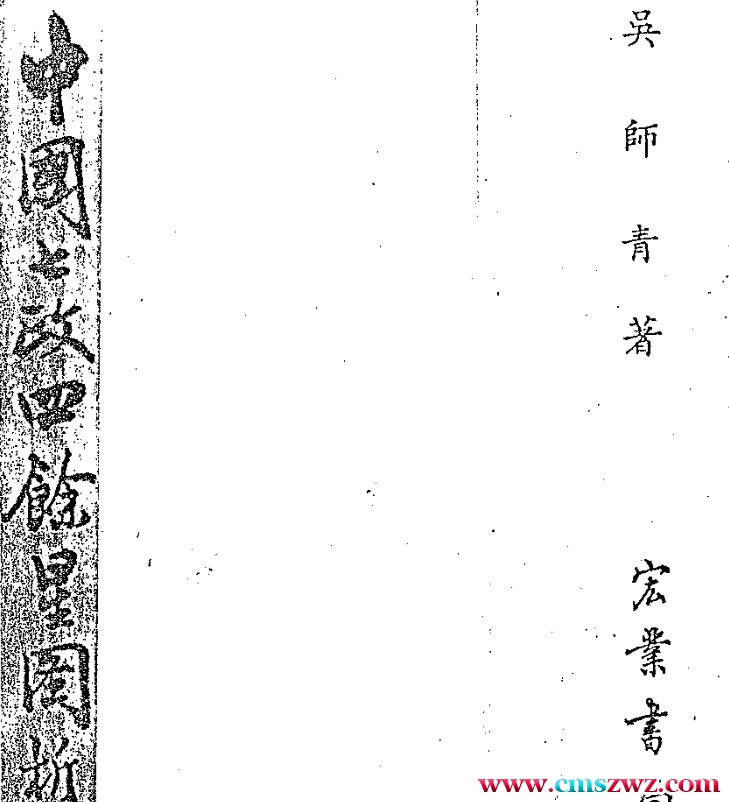 吳師青著
宏業書
中國七政四餘星圖析
www.cmszwz.com